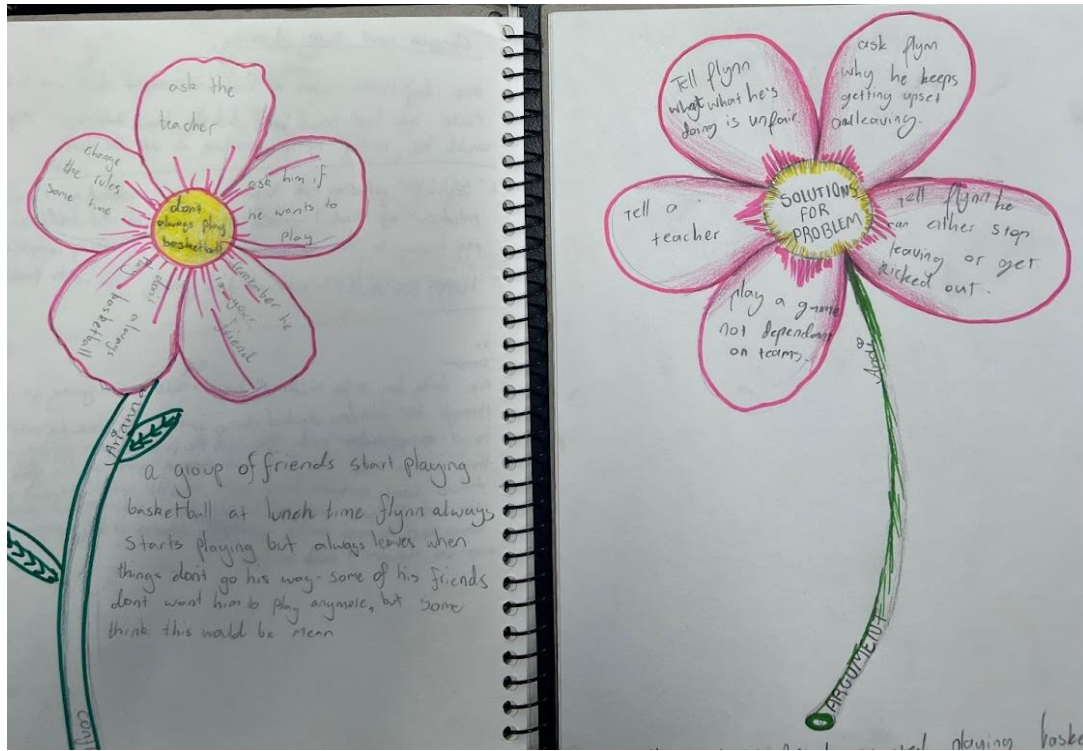 ask the
teacher
change
the rules
some time
ask him if
he wants to
play
don't
always play
basketball
remember he
is your
friend
don't always
play
basketball
Arianna
a group of friends start playing
basketball at lunch time flynn always
starts playing but always leaves when
things don't go his way. some of his friends
dont want him to play anymore, but some
think this would be mean
conf
Tell flynn
what what he's
doing is unfair.
ask flynn
why he keeps
getting upset
and leaving.
Tell a
teacher
SOLUTIONS
FOR
PROBLEM
Tell flynn he
can either stop
leaving or get
kicked out.
play a game
not dependant
on teams.
ARGUMENT
playing baske